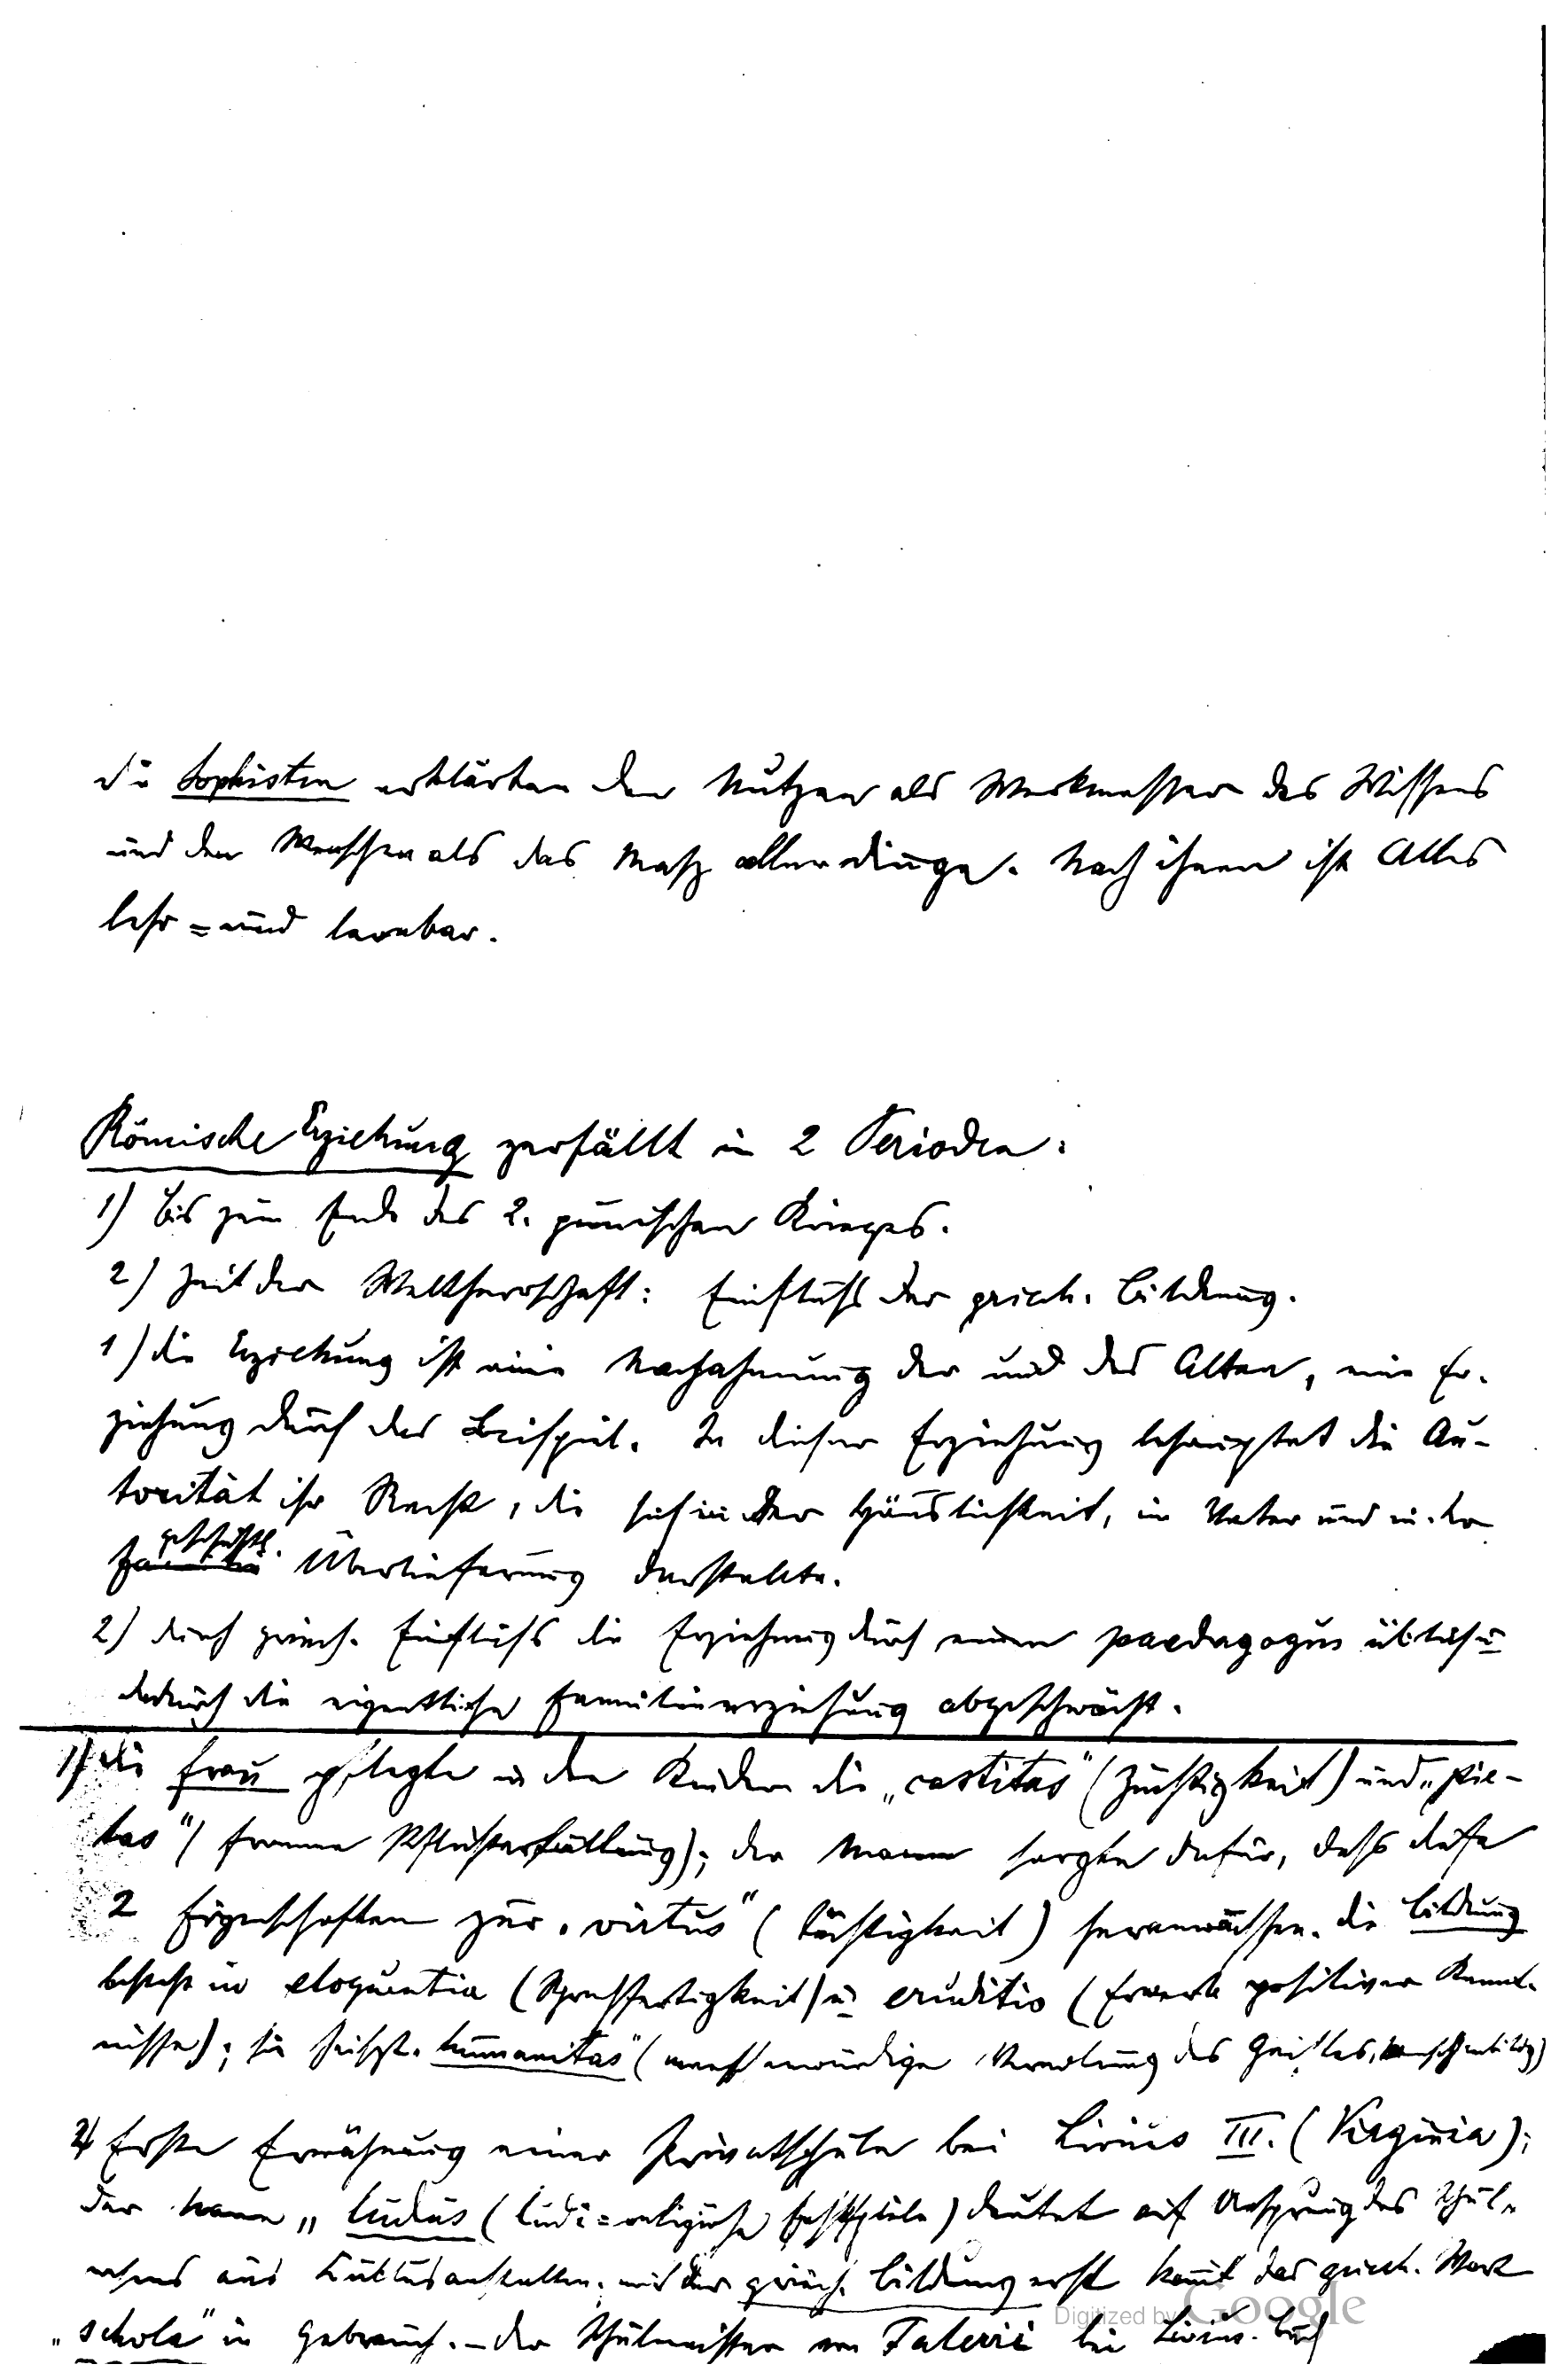 die Sophisten erklärten den Nutzen als Werkmesser des Wissens
und den Menschen als das Maß aller dinge. Nach ihnen ist Alles
lehr= und lernbar.
Römische Erziehung zerfällt in 2 Perioden:
1) bis zum Ende des 2. punischen Krieges.
2) Zeit der Weltherrschaft: Einfluss der griech. Bildung.
1) die Erziehung ist eine Nachahmung der und des Alten, eine Er-
ziehung durch das Beispiel. In dieser Erziehung behauptet die Au-
torität ihr Recht, die sich in der Häuslichkeit, im Vater und in der
geschichtl.
Überlieferung darstellte.
2) durch griech. Einfluss die Erziehung durch einen paedagogus üblich u
dadurch die eigentliche Familienerziehung abgeschwächt.
1) die Frau pflegte in den Kindern die „castitas" (Züchtigkeit) und „pie-
tas" (fromme Pflichterfüllung); der Mann sorgte dafür, dass diese
2 Eigenschaften zur „virtus" (Tüchtigkeit) heranwachsen. die Bildung
besteht in eloquentia (Sprechfertigkeit) u eruditio (Erwerb positiver Kennt-
nisse); sie heißt „humanitas" (menschenwürdige Veredlung des Geistes, Menschenbildg)
2) Erste Erwähnung einer Privatschule bei Livius III. (Virginia);
der Name „ludus (ludi = religiöse Festspiele) deutet auf Ursprung des Schul-
wesens aus Kultusanstalten; mit der griech. Bildung erst kommt das griech. Wort
„schola" in Gebrauch. – der Schulmeister von Falerii bei Livius. Buch
Digitized by Google